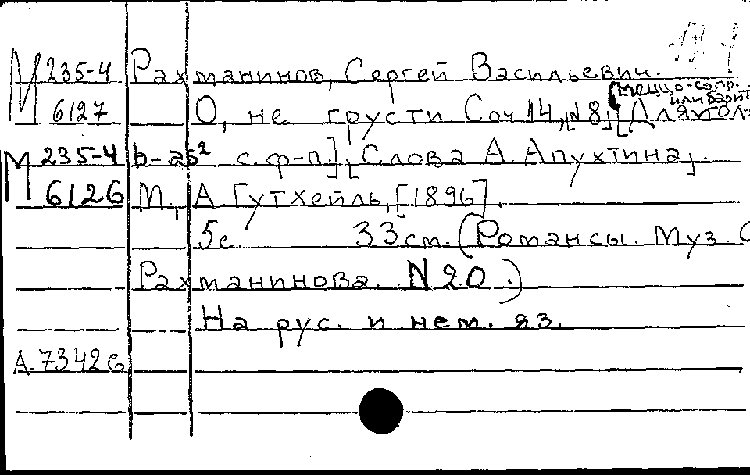 М 235-4 Рахманинов, Сергей Васильевич.
6127 О, не грусти Соч 14, №8, [Для гол.
(меццо-сопр. или барит
М 235-4 b-as² с ф-п.], [Слова А. Апухтина].
6126 М., А Гутхейль, [1896].
5с. 33 см. (Романсы. Муз. С
Рахманинова. N 20.)
На рус. и нем. яз.
А.7342б